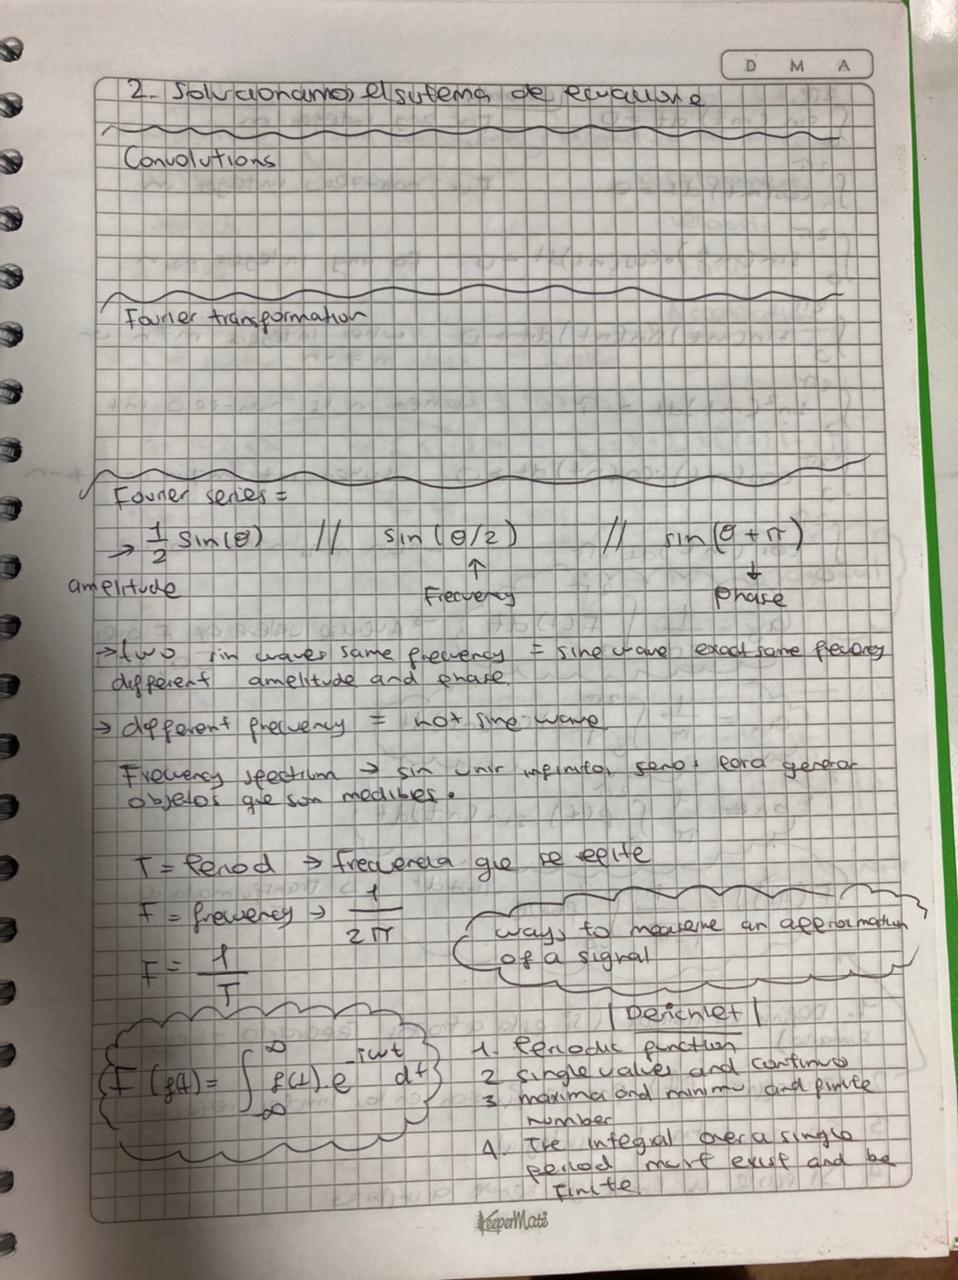 D M A
2. Solucionamos el sistema de ecuacione
Convolutions
Fourier transformation
Fourier series =
→ 1/2 sin(θ) // sin(θ/2) // sin(θ + π)
amplitude ↑ Frecuency ↓ phase
→ two sin waves same frequency = sine wave exact same frecuency
different amplitude and phase
→ different frequency = not sine wave
Frecuency spectrum → sin unir infinitos senos para generar
objetos que son medibles.
T = Period → frecuencia que se repite
F = frecuency → 1/2π
F = 1/T
ways to measure an approximation
of a signal
F(f(t) = ∫ ∞ -∞ f(t).e^-iωt dt
| Derichlet |
1. Periodic function
2 single values and continuos
3 maxima and minimu and finite
number
4. The integral over a single
period must exist and be
finite
KeeperMate